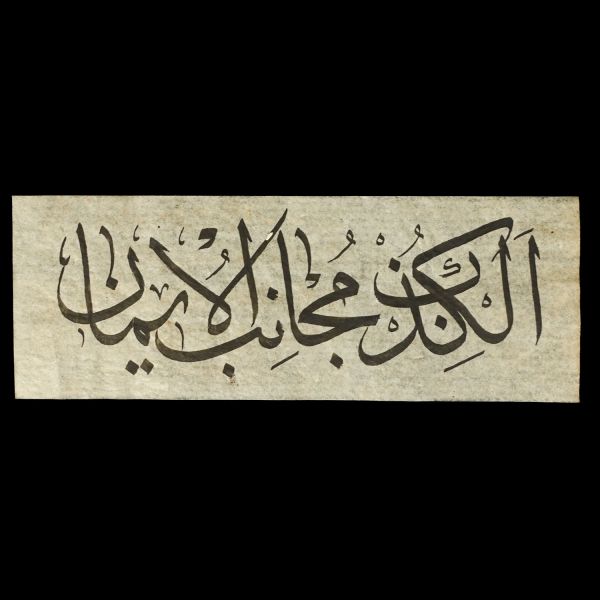 اَلْكِذْبُ مُجَانِبُ الْاِيمَانِ